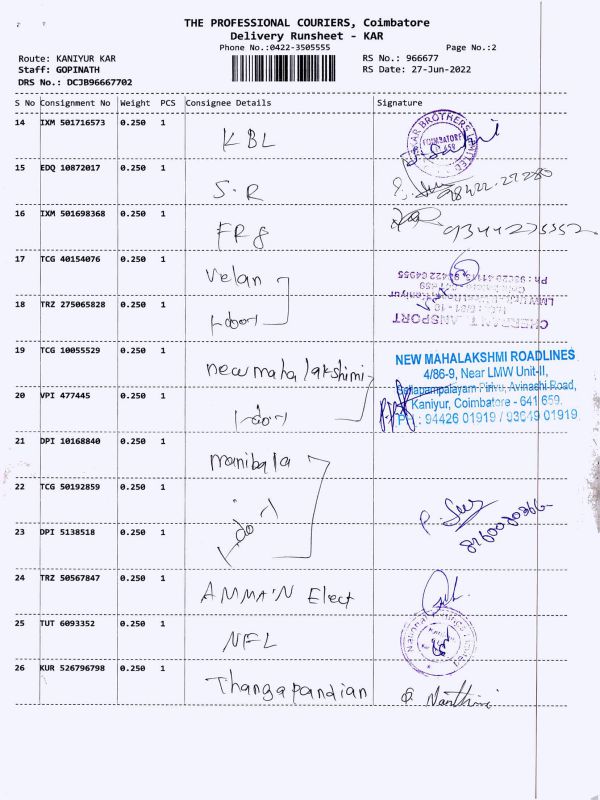 THE PROFESSIONAL COURIERS, Coimbatore
Delivery Runsheet - KAR
Phone No.:0422-3505555
Page No.:2
Route: KANIYUR KAR
RS No.: 966677
Staff: GOPINATH
RS Date: 27-Jun-2022
DRS No.: DCJB96667702
S No Consignment No Weight PCS Consignee Details Signature
14 IXM 501716573 0.250 1 KBL
COIMBATORE
15 EDQ 10872017 0.250 1 S.R
98422-27280
16 IXM 501698368 0.250 1 FR8
9344275552
17 TCG 40154076 0.250 1 velan
18 TRZ 275065828 0.250 1
19 TCG 10055529 0.250 1 new maha lakshmi
NEW MAHALAKSHMI ROADLINES
4/86-9, Near LMW Unit-II,
Pirivu, Avinashi Road,
20 VPI 477445 0.250 1
Kaniyur, Coimbatore - 641 659.
: 94426 01919 / 93649 01919
21 DPI 10168840 0.250 1 manibala
22 TCG 50192859 0.250 1
23 DPI 5138518 0.250 1
24 TRZ 50567847 0.250 1 AMMA'N Elect
25 TUT 6093352 0.250 1 NFL
26 KUR 526796798 0.250 1 Thangapandian